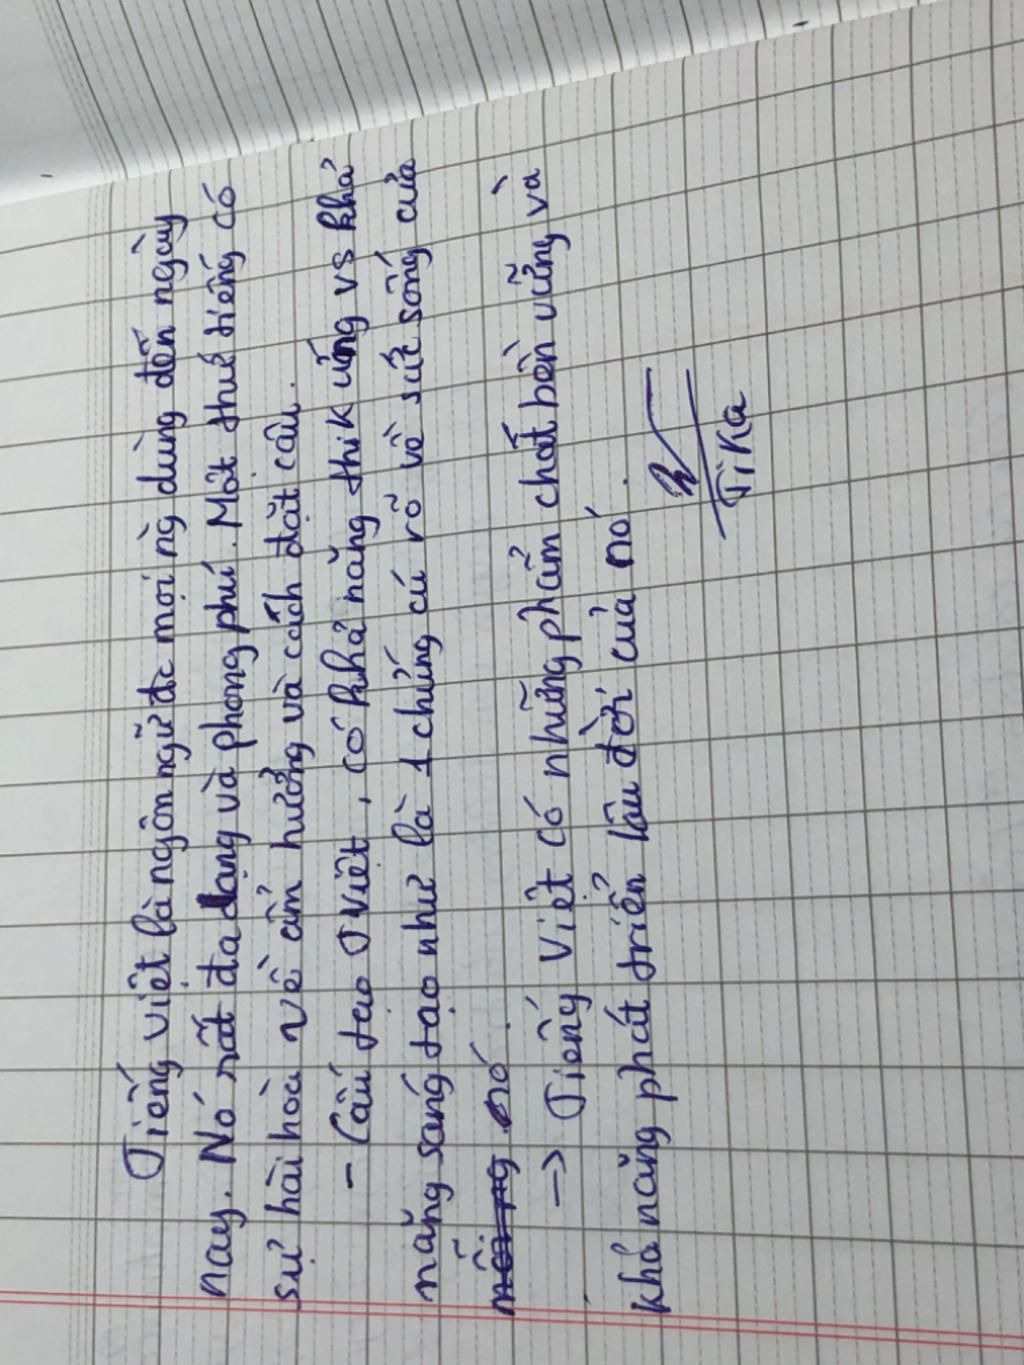 Tiếng việt là ngôn ngữ đc mọi ng dùng đến ngày
nay. Nó rất đa dạng và phong phú. Một thứ tiếng có
sự hài hòa về âm hưởng và cách đặt câu.
- Cấu tạo TViệt, có khả năng thik ứng vs khả
năng sáng tạo như là 1 chứng cứ rõ về sức sống của
nó.
-> Tiếng Việt có những phẩm chất bền vững và
khả năng phát triển lâu đời của nó.
Tika